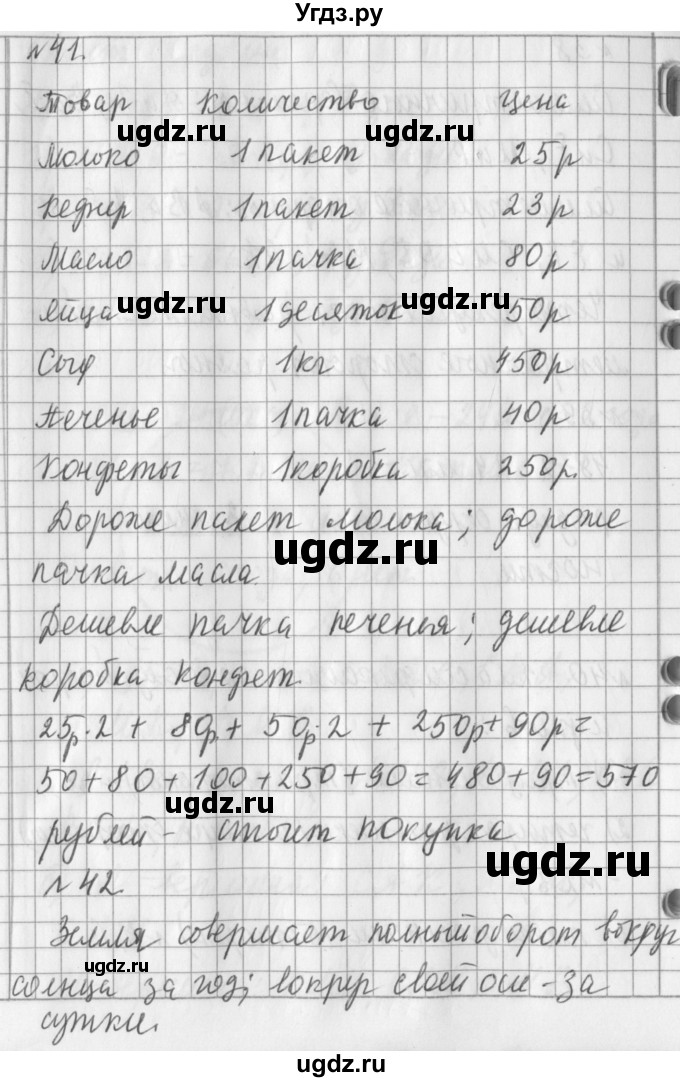 Угдз.ру
№41.
Товар Количество Цена
ugdz.ru ugdz.ru
Молоко 1 пакет 25р
Кефир 1 пакет 23р
Масло 1 пачка 80р
Яйца 1 десяток 50р
ugdz.ru ugdz.ru
Сыр 1 кг 450р
Печенье 1 пачка 40р
Конфеты 1 коробка 250р.
Дороже пакет молока; дороже
ugdz.ru
пачка масла.
Дешевле пачка печенья; дешевле
коробка конфет.
25р·2 + 80р + 50р·2 + 250р + 90р =
50+80+100+250+90=480+90=570
ugdz.ru
рублей - стоит покупка
ugdz.ru
№42.
Земля совершает полный оборот вокруг
ugdz.ru
солнца за год; вокруг своей оси - за
сутки.
ugdz.ru